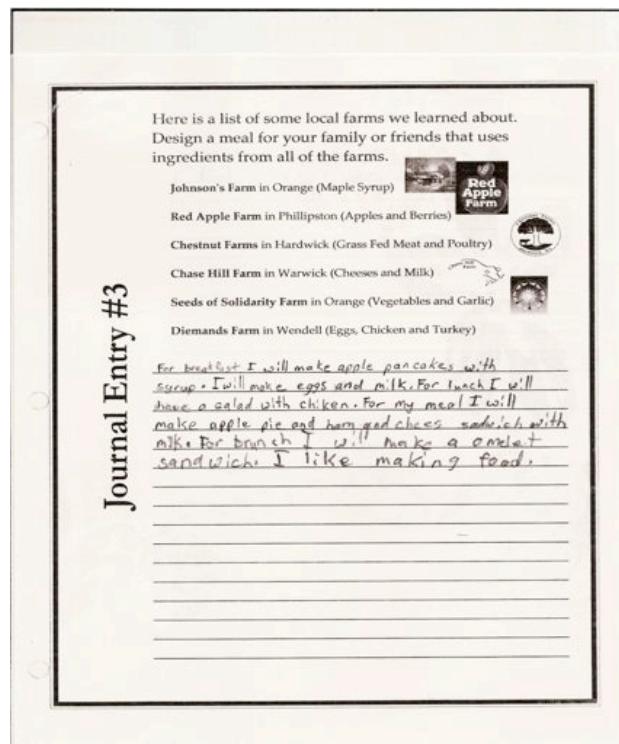 Here is a list of some local farms we learned about.
Design a meal for your family or friends that uses
ingredients from all of the farms.
Johnson's Farm in Orange (Maple Syrup)
Red
Apple
Farm
Red Apple Farm in Phillipston (Apples and Berries)
Chestnut Farms in Hardwick (Grass Fed Meat and Poultry)
Chase Hill Farm in Warwick (Cheeses and Milk)
Seeds of Solidarity Farm in Orange (Vegetables and Garlic)
Diemands Farm in Wendell (Eggs, Chicken and Turkey)
Journal Entry #3
For breakfist I will make apple pancakes with
syrup. I will make eggs and milk. For lunch I will
have a salad with chiken. For my meal I will
make apple pie and ham and chees sadwich with
milk. For brunch I will make a omelet
sandwich. I like making food.